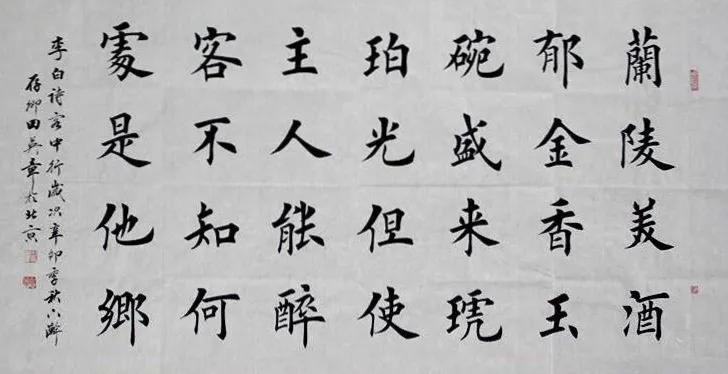 蘭陵美酒
郁金香玉
碗盛来琥
珀光但使
主人能醉
客不知何
處是他鄉
李白詩客中行歲次辛卯季秋小澣
存卿田英章於北京